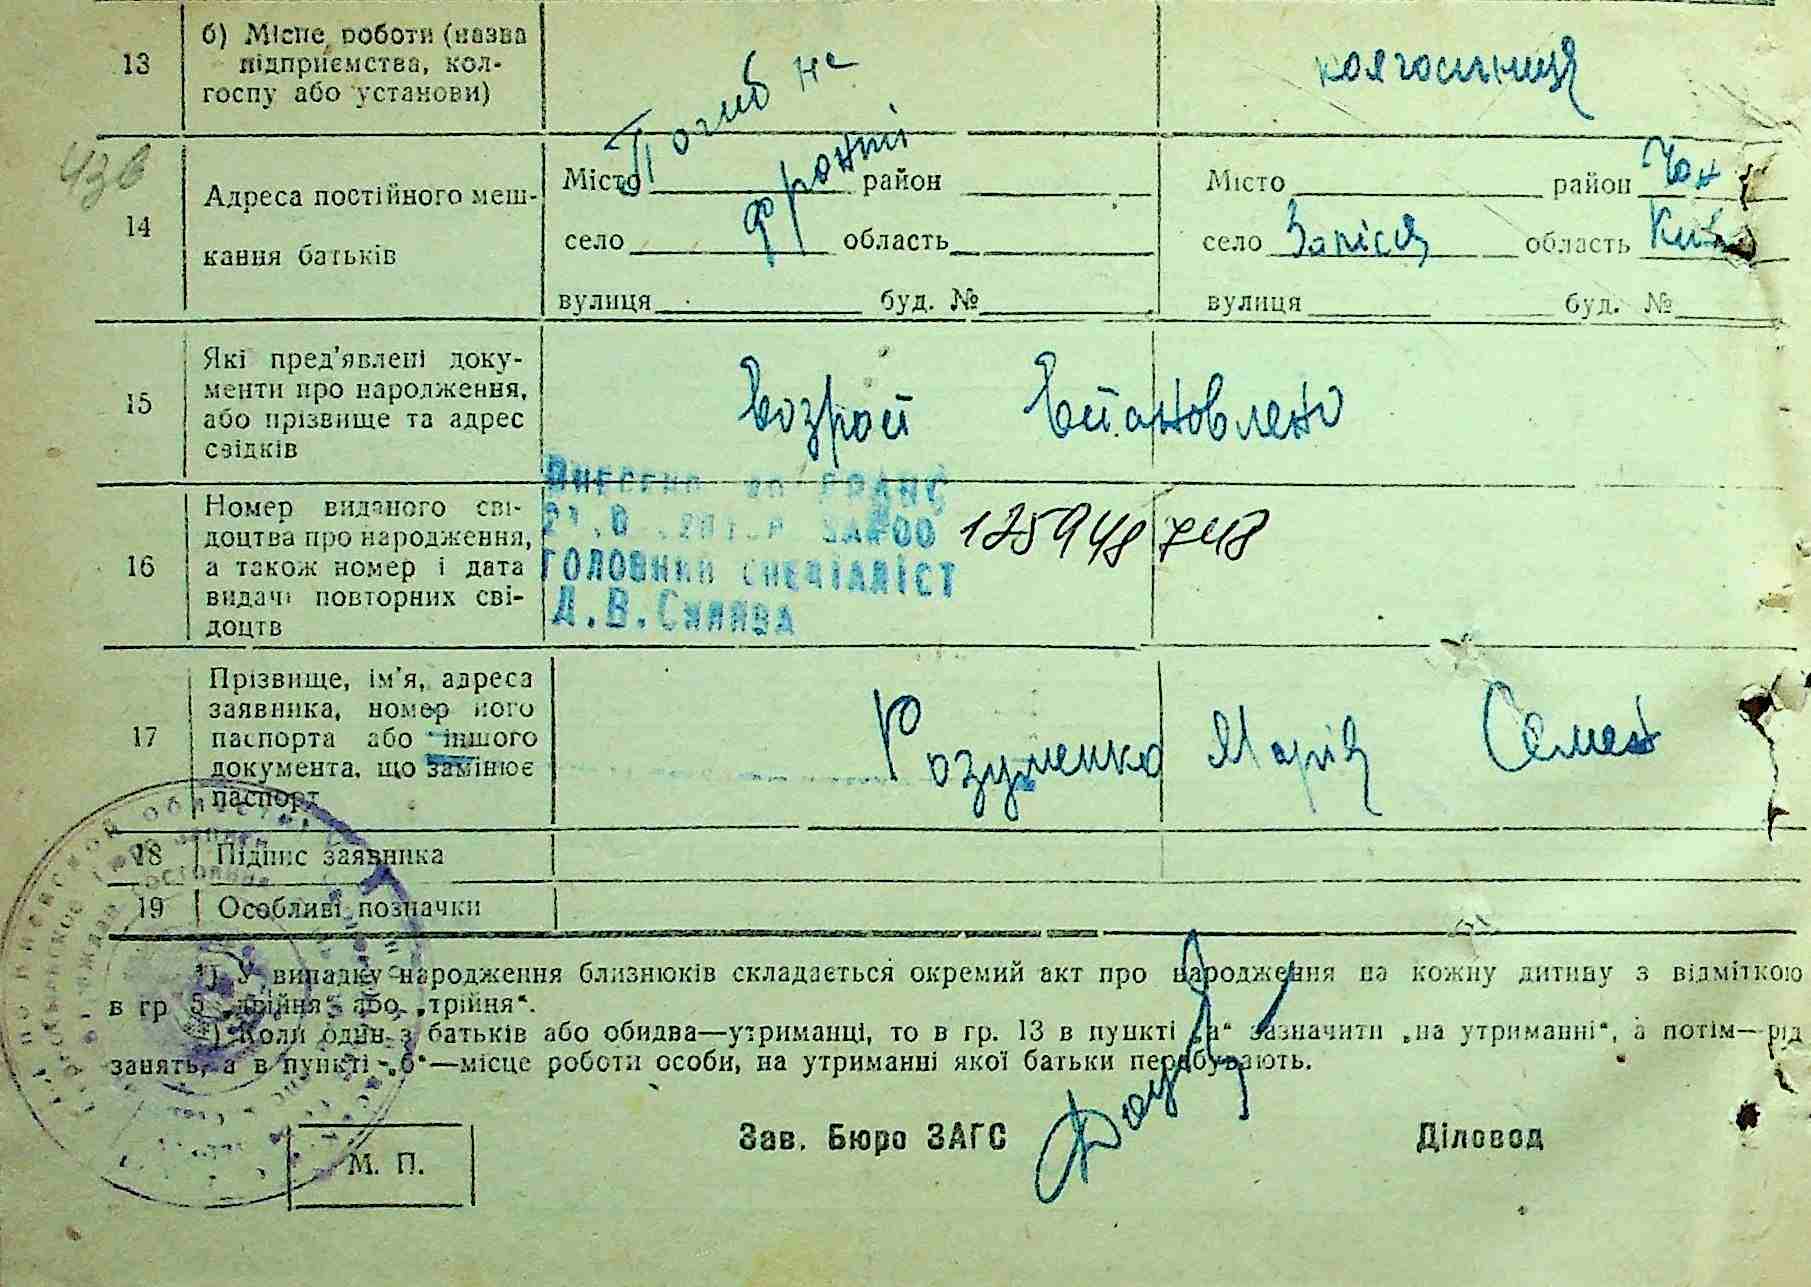 13
б) Місце роботи (назва
підприємства, кол-
госпу або установи)
Погиб на
фронті
колгоспниця
43в
14
Адреса постійного меш-
кання батьків
Місто район
село область
вулиця буд. №
Місто район Чон
село Заліся область Киї
вулиця буд. №
15
Які пред'явлені доку-
менти про народження,
або прізвище та адрес
свідків
Возраст Встановлено
16
Номер виданого сві-
доцтва про народження,
а також номер і дата
видачі повторних сві-
доцтв
Внесено до ДРАЦС
ГОЛОВНИЙ СПЕЦІАЛІСТ
Д.В.Синява
17
Прізвище, ім'я, адреса
заявника, номер його
паспорта або іншого
документа, що замінює
паспорт
Розуменко Марія Семен
18 Підпис заявника
19 Особливі позначки
¹) У випадку народження близнюків складається окремий акт про народження на кожну дитину з відміткою
в гр 5 „двійня“ або „трійня“.
²) Коли один з батьків або обидва—утриманці, то в гр. 13 в пункті „а“ зазначити „на утриманні“, а потім—рід
занять, а в пункті „б“—місце роботи особи, на утриманні якої батьки перебувають.
Зав. Бюро ЗАГС
Діловод
М. П.